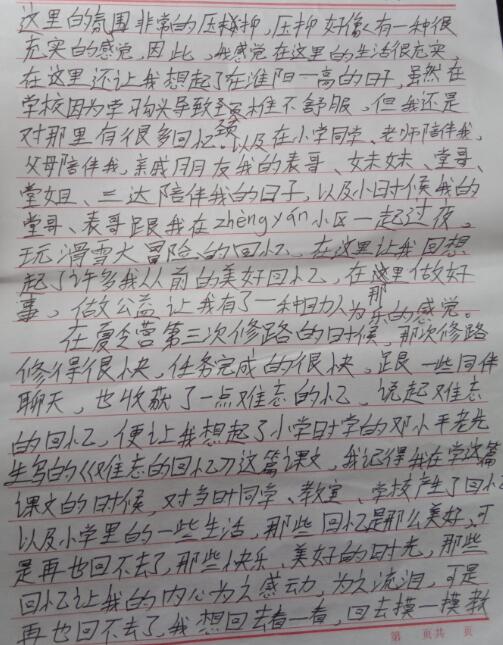 这里的氛围非常的压抑,压抑好像有一种很
充实的感觉,因此,我感觉在这里的生活很充实,
在这里还让我想起了在淮阳一高的日子,虽然在
学校因为学习低头导致颈椎不舒服,但我还是
对那里有很多回忆,以及在小学同学、老师陪伴我,
父母陪伴我,亲戚朋友我的表哥、妹妹、堂哥、
堂姐、三达陪伴我的日子,以及小时候我的
堂哥、表哥跟我在zhengyan小区一起过夜,
玩滑雪大冒险的回忆,在这里让我回想
起了许多我从前的美好回忆,在这里做好
事,做公益让我有了一种助人为乐的感觉。
在夏令营第三次修路的时候,那次修路
修得很快,任务完成的很快,跟一些同伴
聊天,也收获了一点难忘的忆,说起难忘
的回忆,便让我想起了小学时学的邓小平老先
生写的《难忘的回忆》这篇课文,我记得我在学这篇
课文的时候,对当时同学、教室、学校产生了回忆
以及小学里的一些生活,那些回忆是那么美好,可
是再也回不去了,那些快乐、美好的时光,那些
回忆让我的内心为之感动,为之流泪,可是
再也回不去了,我想回去看一看,回去摸一摸教
第 页共 页